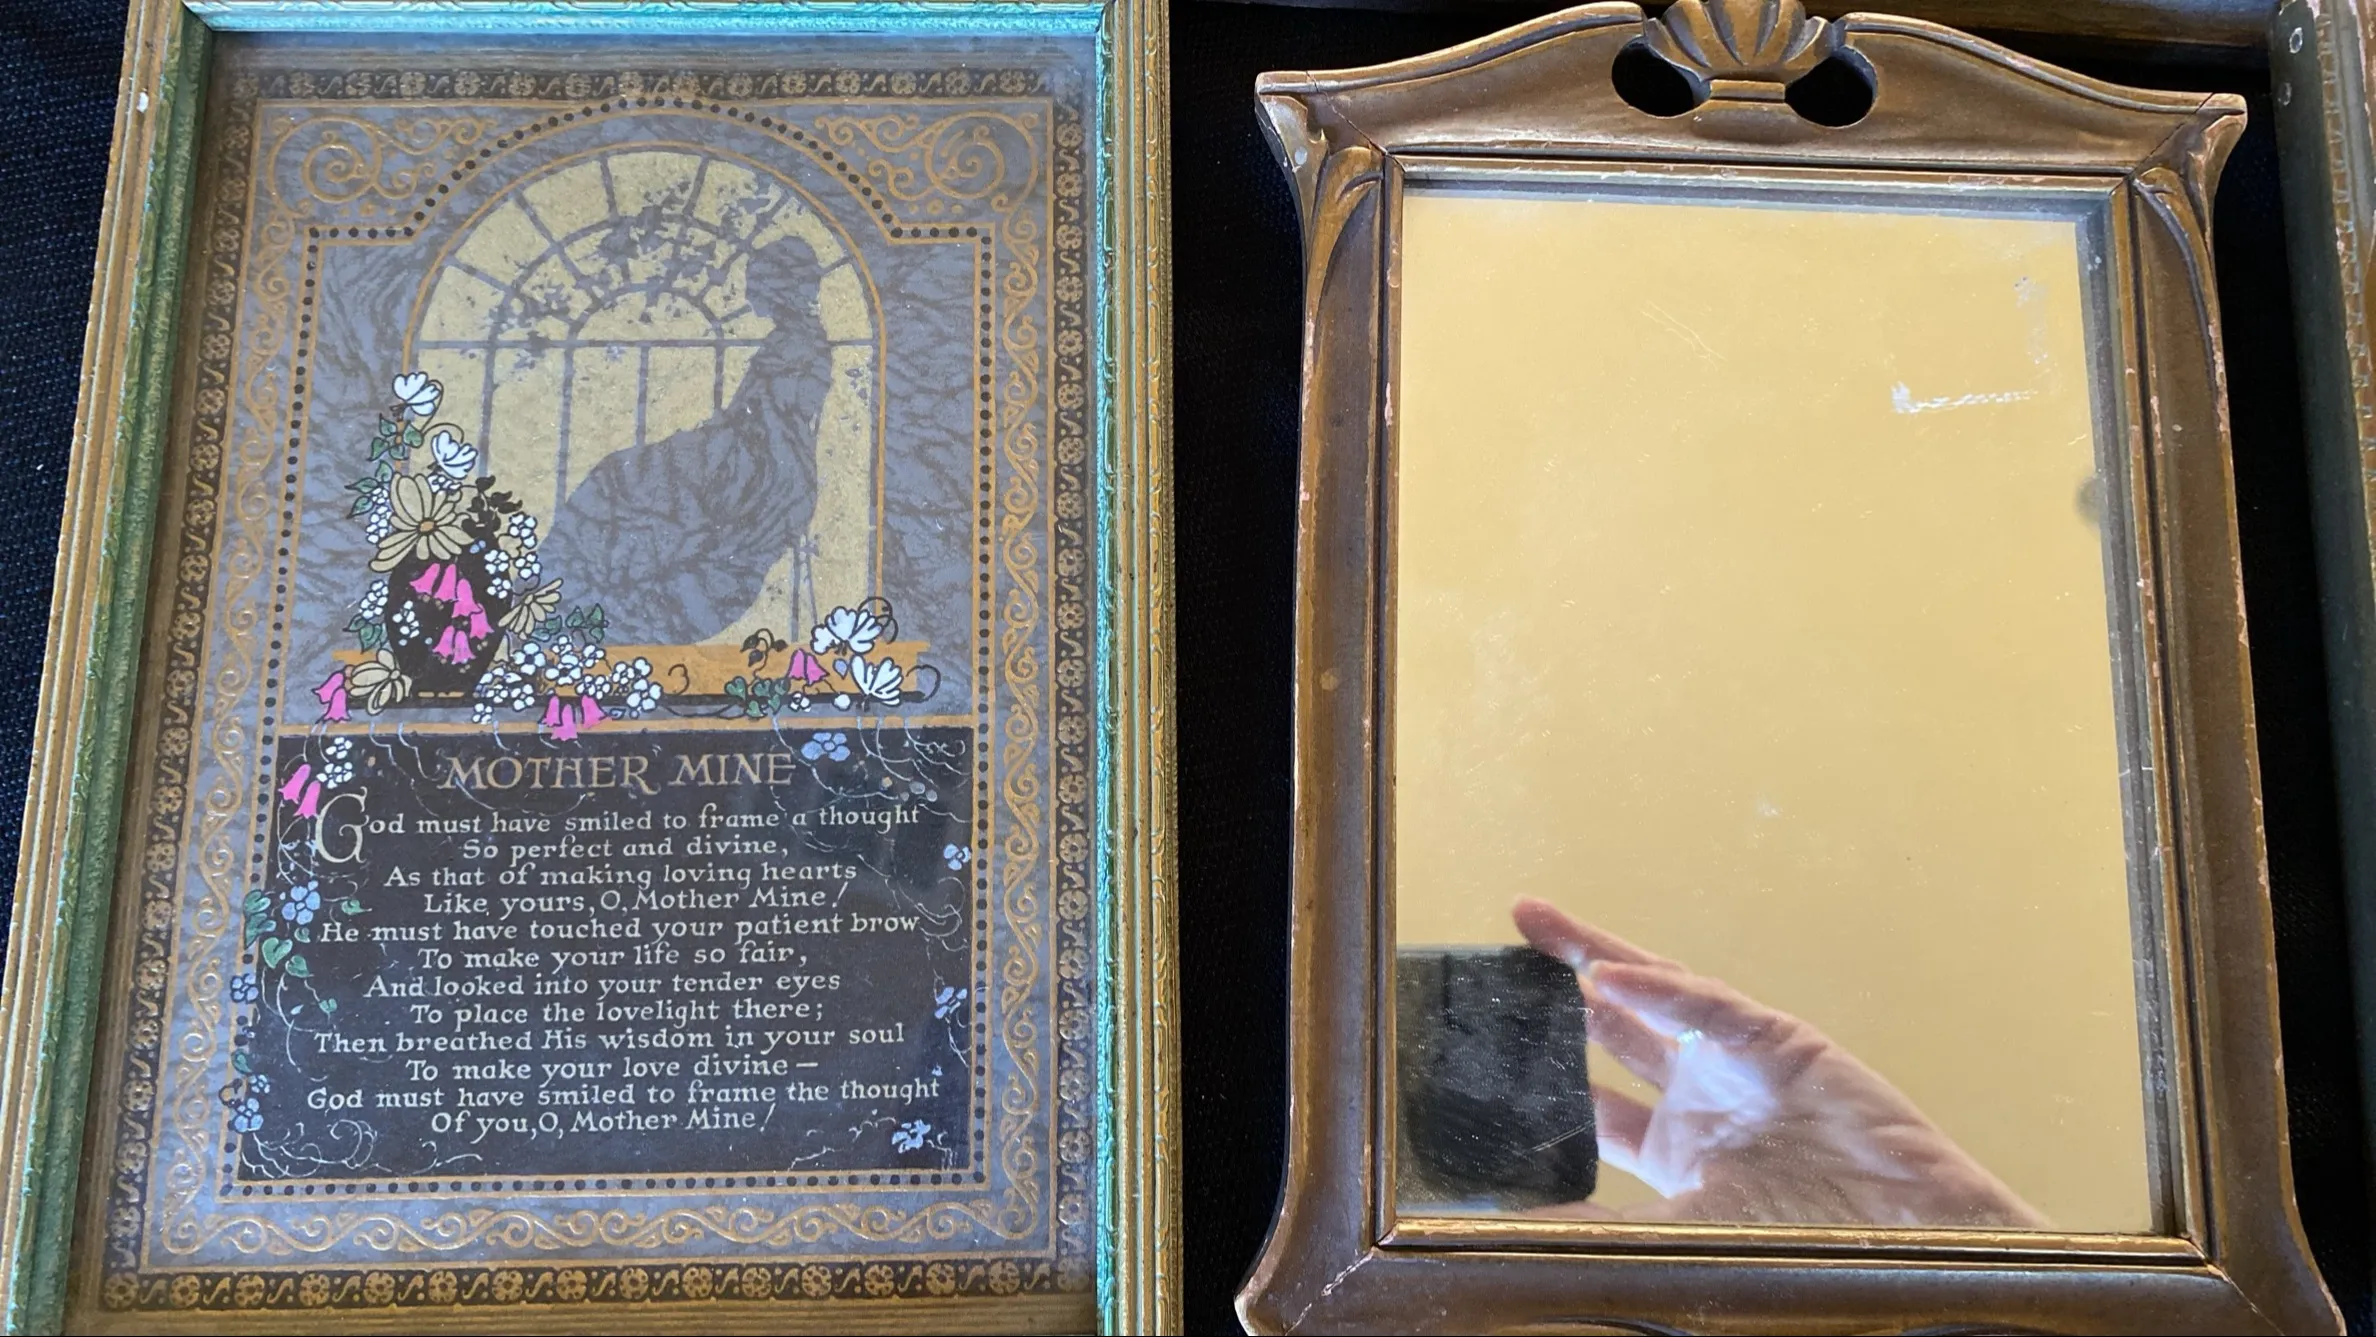 MOTHER MINE
God must have smiled to frame a thought
So perfect and divine,
As that of making loving hearts
Like yours, O, Mother Mine!
He must have touched your patient brow
To make your life so fair,
And looked into your tender eyes
To place the lovelight there;
Then breathed His wisdom in your soul
To make your love divine —
God must have smiled to frame the thought
Of you, O, Mother Mine!